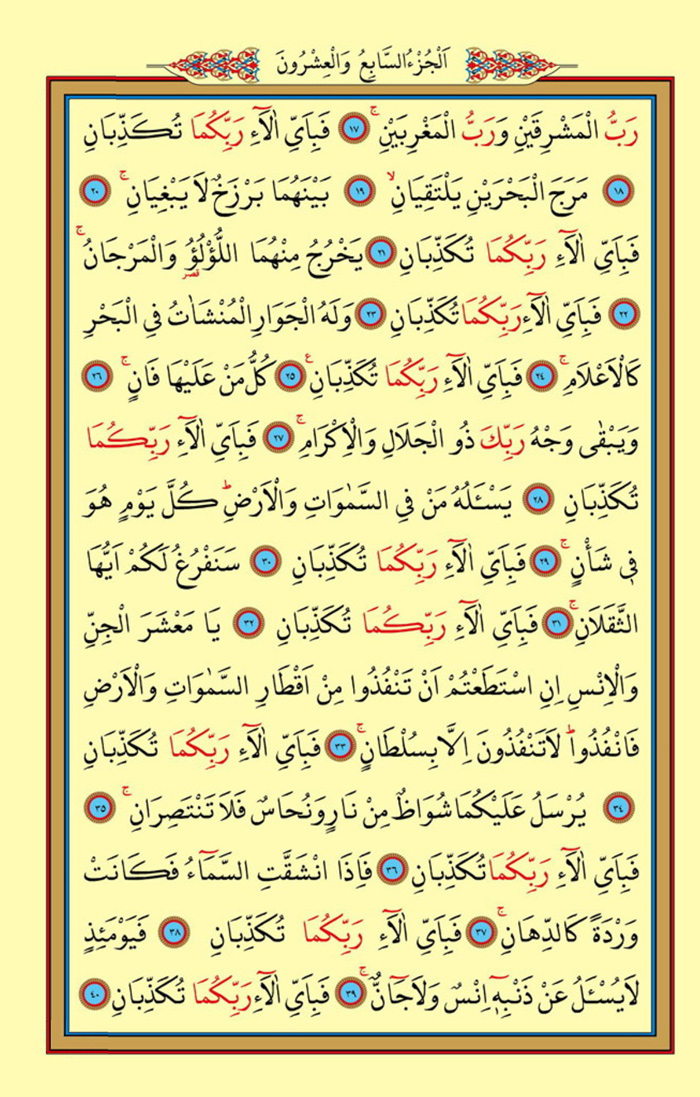 اَلْجُزْءُ السَّابِعُ وَالْعِشْرُونَ
رَبُّ الْمَشْرِقَيْنِ وَرَبُّ الْمَغْرِبَيْنِۚ ﴿١٧﴾ فَبِاَيِّ اٰلَٓاءِ رَبِّكُمَا تُكَذِّبَانِ
﴿١٨﴾ مَرَجَ الْبَحْرَيْنِ يَلْتَقِيَانِۙ ﴿١٩﴾ بَيْنَهُمَا بَرْزَخٌ لَا يَبْغِيَانِۚ ﴿٢٠﴾
فَبِاَيِّ اٰلَٓاءِ رَبِّكُمَا تُكَذِّبَانِ ﴿٢١﴾ يَخْرُجُ مِنْهُمَا اللُّؤْلُؤُ۬ وَالْمَرْجَانُۚ
قصر
﴿٢٢﴾ فَبِاَيِّ اٰلَٓاءِ رَبِّكُمَا تُكَذِّبَانِ ﴿٢٣﴾ وَلَهُ الْجَوَارِ الْمُنْشَاٰتُ فِي الْبَحْرِ
كَالْاَعْلَامِۚ ﴿٢٤﴾ فَبِاَيِّ اٰلَٓاءِ رَبِّكُمَا تُكَذِّبَانِ۟ ﴿٢٥﴾ كُلُّ مَنْ عَلَيْهَا فَانٍۚ ﴿٢٦﴾
وَيَبْقٰى وَجْهُ رَبِّكَ ذُو الْجَلَالِ وَالْاِكْرَامِۚ ﴿٢٧﴾ فَبِاَيِّ اٰلَٓاءِ رَبِّكُمَا
تُكَذِّبَانِ ﴿٢٨﴾ يَسْـَٔلُهُ مَنْ فِي السَّمٰوَاتِ وَالْاَرْضِۜ كُلَّ يَوْمٍ هُوَ
فٖي شَأْنٍۚ ﴿٢٩﴾ فَبِاَيِّ اٰلَٓاءِ رَبِّكُمَا تُكَذِّبَانِ ﴿٣٠﴾ سَنَفْرُغُ لَكُمْ اَيُّهَا
الثَّقَلَانِۚ ﴿٣١﴾ فَبِاَيِّ اٰلَٓاءِ رَبِّكُمَا تُكَذِّبَانِ ﴿٣٢﴾ يَا مَعْشَرَ الْجِنِّ
وَالْاِنْسِ اِنِ اسْتَطَعْتُمْ اَنْ تَنْفُذُوا مِنْ اَقْطَارِ السَّمٰوَاتِ وَالْاَرْضِ
فَانْفُذُواۜ لَا تَنْفُذُونَ اِلَّا بِسُلْطَانٍۚ ﴿٣٣﴾ فَبِاَيِّ اٰلَٓاءِ رَبِّكُمَا تُكَذِّبَانِ
﴿٣٤﴾ يُرْسَلُ عَلَيْكُمَا شُوَاظٌ مِنْ نَارٍ وَنُحَاسٌ فَلَا تَنْتَصِرَانِۚ ﴿٣٥﴾
فَبِاَيِّ اٰلَٓاءِ رَبِّكُمَا تُكَذِّبَانِ ﴿٣٦﴾ فَاِذَا انْشَقَّتِ السَّمَٓاءُ فَكَانَتْ
وَرْدَةً كَالدِّهَانِۚ ﴿٣٧﴾ فَبِاَيِّ اٰلَٓاءِ رَبِّكُمَا تُكَذِّبَانِ ﴿٣٨﴾ فَيَوْمَئِذٍ
لَا يُسْـَٔلُ عَنْ ذَنْبِهٖٓ اِنْسٌ وَلَا جَٓانٌّۚ ﴿٣٩﴾ فَبِاَيِّ اٰلَٓاءِ رَبِّكُمَا تُكَذِّبَانِ ﴿٤٠﴾